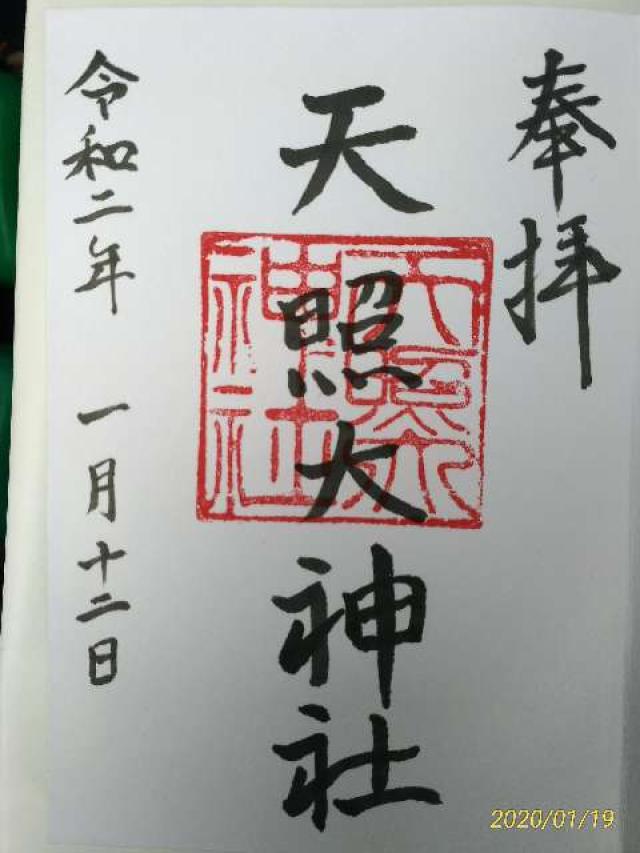 奉拝
天照大神社
天照大神社
令和二年 一月十二日
2020/01/19